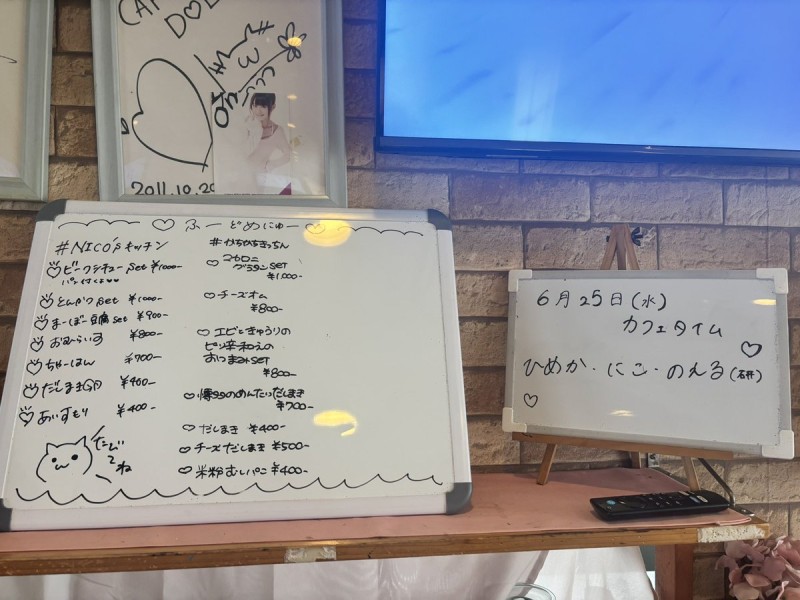 CAF
DOL
2011.10.20
ふーどめにゅー
#NICO'sキッチン
ビーフシチューset ¥1000-
とんかつset ¥1000-
まーぼー豆腐set ¥900-
おむらいす ¥800-
ちゃーはん ¥700-
だしまき ¥400-
あいすもり ¥400-
たべてね
#かちかちきっちん
マカロニ
グラタンset
¥1,000-
チーズオム
¥800-
エビときゅうりの
ピリ辛和えの
おつまみset
¥800-
爆99のめんたいだしまき
¥700-
だしまき ¥400-
チーズだしまき ¥500-
米粉むしパン ¥400-
6月25日(水)
カフェタイム
ひめか・にこ・のえる(石井)